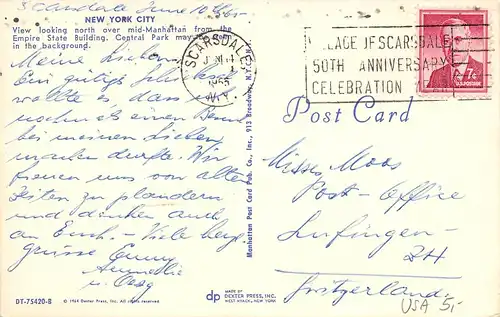 Scarsdale June 10 1965
NEW YORK CITY
View looking north over mid-Manhattan from the
Empire State Building. Central Park may be seen
in the background.
Meine Lieben
Ein gütiges
wollte es, dass
noch als einen Besuch
bei meinen Lieben
machen durfte. Wir
freuen uns von alten
Zeiten zu plaudern
und denken auch
an Euch. Viele herzl.
grüsse Emmy
Annelie
u.
DT-75420-B
© 1964 Dexter Press, Inc. All rights reserved.
Manhattan Post Card Pub. Co., Inc., 913 Broadway, N.Y.
dp
MADE BY
DEXTER PRESS, INC.
WEST NYACK, NEW YORK
SCARSDALE
1965
N.Y.
VILLAGE OF SCARSDALE
50TH ANNIVERSARY
CELEBRATION
7¢
U.S. POSTAGE
Post Card
Misses Moos
Post-Office
Lufingen
ZH
Switzerland
USA 5,-